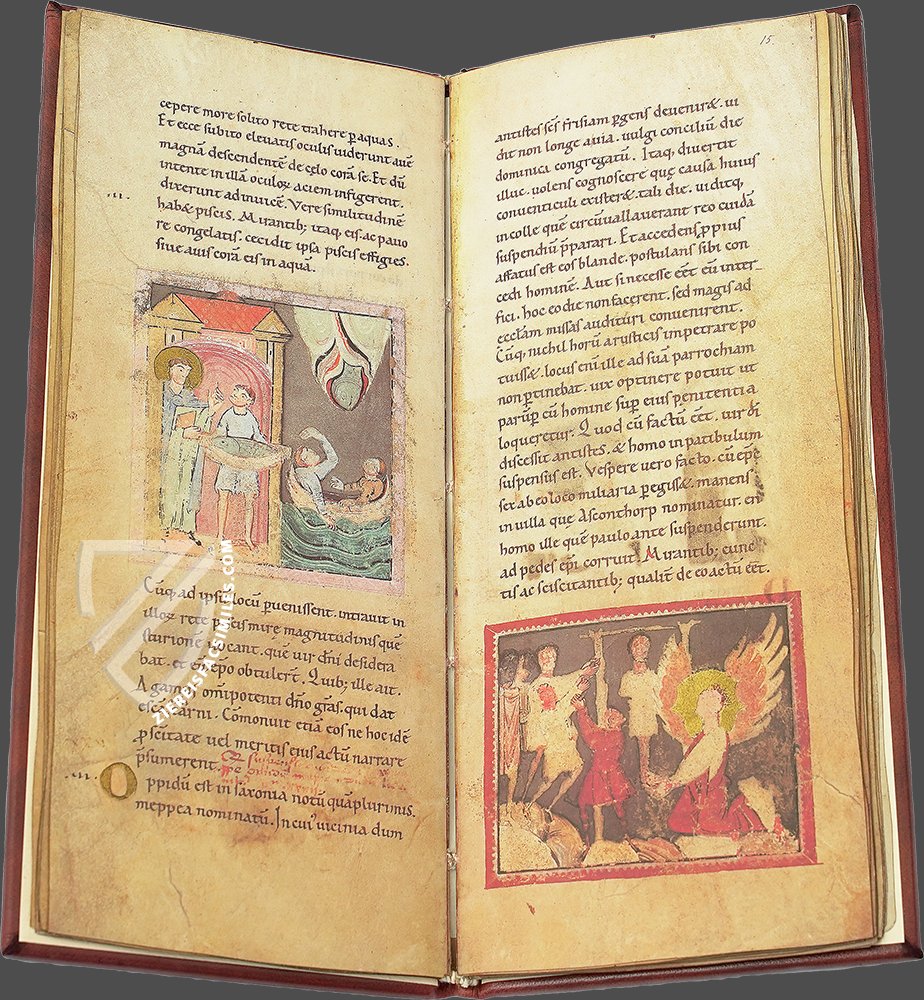 cepere more solito rete trahere ꝑ aquas.
Et ecce subito elevatis oculis viderunt avē
magnā descendentē de celo corā se. Et dū
intente in illā oculoꝝ aciem infigerent.
dixerunt ad invicē. Vere similitudinē
hab& piscis. Mirantib; itaq, eis. ac pavo
re congelatis. cecidit ipsa piscis effigies.
sive avis corā eis in aquā.
Cūq, ad ipsū locū ꝑvenissent. intravit in
illoꝝ rete piscis mirę magnitudinis quē
sturionē vocant. quē vir dn̄i desidera
bat. et eū epo obtulert. Quib; ille ait.
Agam omīpotenti dn̄o grās. qui dat
escā carni. Cōmonuit etiā eos ne hoc idē
ꝓ scītate vel meritis ejus actū narrare
p̄sumerent.
Oppidū est in saxonia notū quāplurimis.
meppea nominatū. In cui' vicinia dum
15
antistes scs̄ frisiam ꝑgens devenir&. ui
dit non longe a via. vulgi conciliū die
dominica congregatū. Itaq, divertit
illuc. volens cognoscere quę causa huius
conventiculi exister& tali die. viditq,
in colle quē circūvallaverant reo cuidā
suspendiū p̄parari. Et accedens ꝓpius
affatus est eos blande. postulans sibi con
cedi hominē. Aut si necesse eēt eū inter-
fici. hoc eo die non facerent. sed magis ad
ecclam missas audituri convenirent.
Cūq, nichil horū a rusticis impetrare po
tuiss&. locus enī ille ad suā parrochiam
non ꝑtinebat. vix optinere potuit ut
parūꝑ cū homine suꝑ ejus penitentia
loqueretur. Quod cū factū eēt. vir dī
discessit antistes. & homo in patibulum
suspensus est. Vespere vero facto. cū epe
ser ab eo loco miliaria ꝑegiss&. manens
in villa que Asconthorp nominatur. en
homo ille quē paulo ante suspenderunt.
ad pedes epi corruit. Mirantib; cunc
tis ac sciscitantib; qualit de eo actū eēt.
ZIEREISFACSIMILES.COM